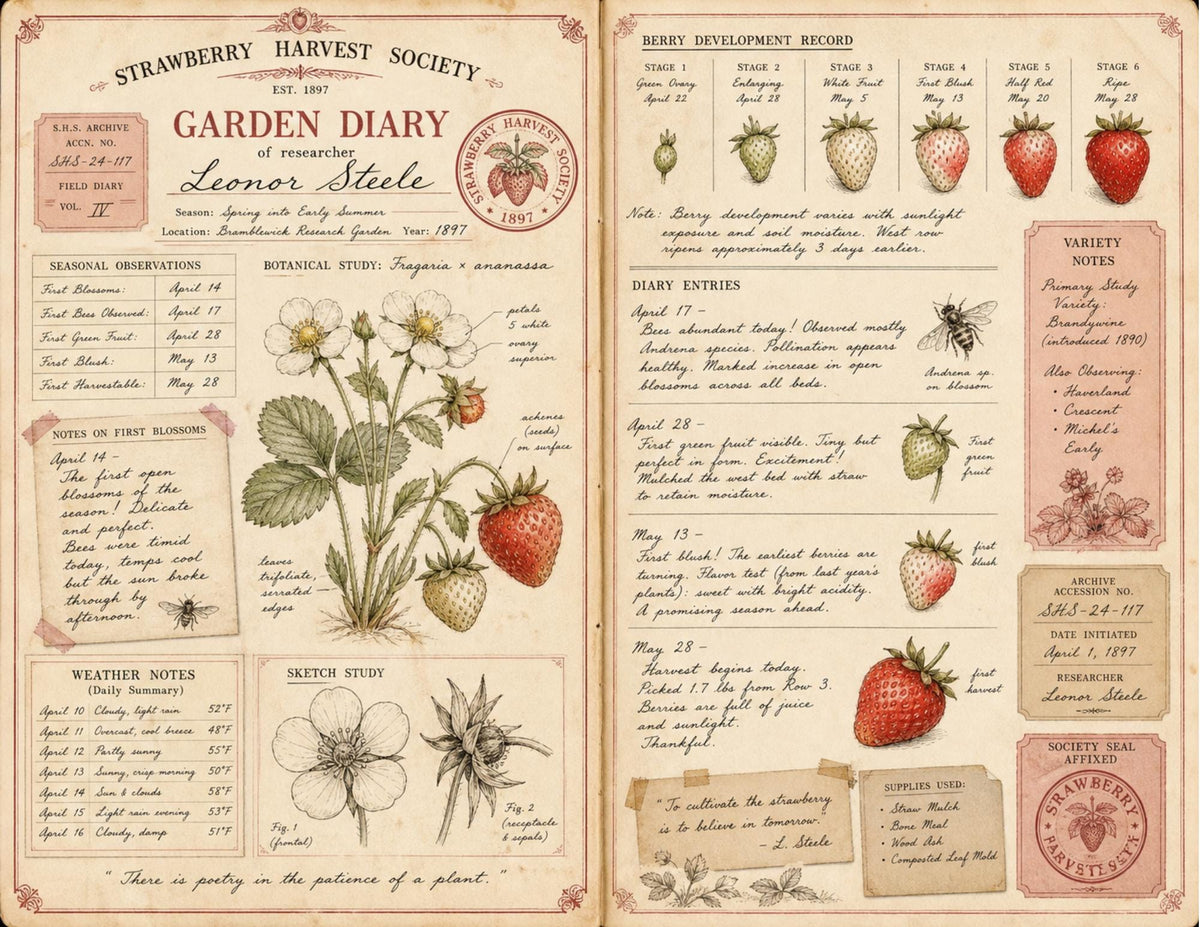 STRAWBERRY HARVEST SOCIETY
EST. 1897
GARDEN DIARY
of researcher
Leonor Steele
Season: Spring into Early Summer
Location: Bramblewick Research Garden Year: 1897
S.H.S. ARCHIVE
ACCN. NO.
SHS-24-117
FIELD DIARY
VOL. IV
STRAWBERRY HARVEST SOCIETY
1897
SEASONAL OBSERVATIONS
First Blossoms: April 14
First Bees Observed: April 17
First Green Fruit: April 28
First Blush: May 13
First Harvestable: May 28
BOTANICAL STUDY: Fragaria × ananassa
petals
5 white
ovary
superior
achenes
(seeds)
on surface
leaves
trifoliate,
serrated
edges
NOTES ON FIRST BLOSSOMS
April 14 –
The first open
blossoms of the
season! Delicate
and perfect.
Bees were timid
today, temps cool
but the sun broke
through by
afternoon.
WEATHER NOTES
(Daily Summary)
April 10 Cloudy, light rain 52°F
April 11 Overcast, cool breeze 48°F
April 12 Partly sunny 55°F
April 13 Sunny, crisp morning 50°F
April 14 Sun & clouds 58°F
April 15 Light rain evening 53°F
April 16 Cloudy, damp 51°F
SKETCH STUDY
Fig. 1
(frontal)
Fig. 2
(receptacle
& sepals)
"There is poetry in the patience of a plant."
BERRY DEVELOPMENT RECORD
STAGE 1
Green Ovary
April 22
STAGE 2
Enlarging
April 28
STAGE 3
White Fruit
May 5
STAGE 4
First Blush
May 13
STAGE 5
Half Red
May 20
STAGE 6
Ripe
May 28
Note: Berry development varies with sunlight
exposure and soil moisture. West row
ripens approximately 3 days earlier.
DIARY ENTRIES
April 17 –
Bees abundant today! Observed mostly
Andrena species. Pollination appears
healthy. Marked increase in open
blossoms across all beds.
Andrena sp.
on blossom
April 28 –
First green fruit visible. Tiny but
perfect in form. Excitement!
Mulched the west bed with straw
to retain moisture.
First
green
fruit
May 13 –
First blush! The earliest berries are
turning. Flavor test (from last year's
plants): sweet with bright acidity.
A promising season ahead.
first
blush
May 28 –
Harvest begins today.
Picked 1.7 lbs from Row 3.
Berries are full of juice
and sunlight.
Thankful.
first
harvest
"To cultivate the strawberry
is to believe in tomorrow."
– L. Steele
SUPPLIES USED:
• Straw Mulch
• Bone Meal
• Wood Ash
• Composted Leaf Mold
VARIETY
NOTES
Primary Study
Variety:
Brandywine
(introduced 1890)
Also Observing:
• Haverland
• Crescent
• Michel's
Early
ARCHIVE
ACCESSION NO.
SHS-24-117
DATE INITIATED
April 1, 1897
RESEARCHER
Leonor Steele
SOCIETY SEAL
AFFIXED
STRAWBERRY